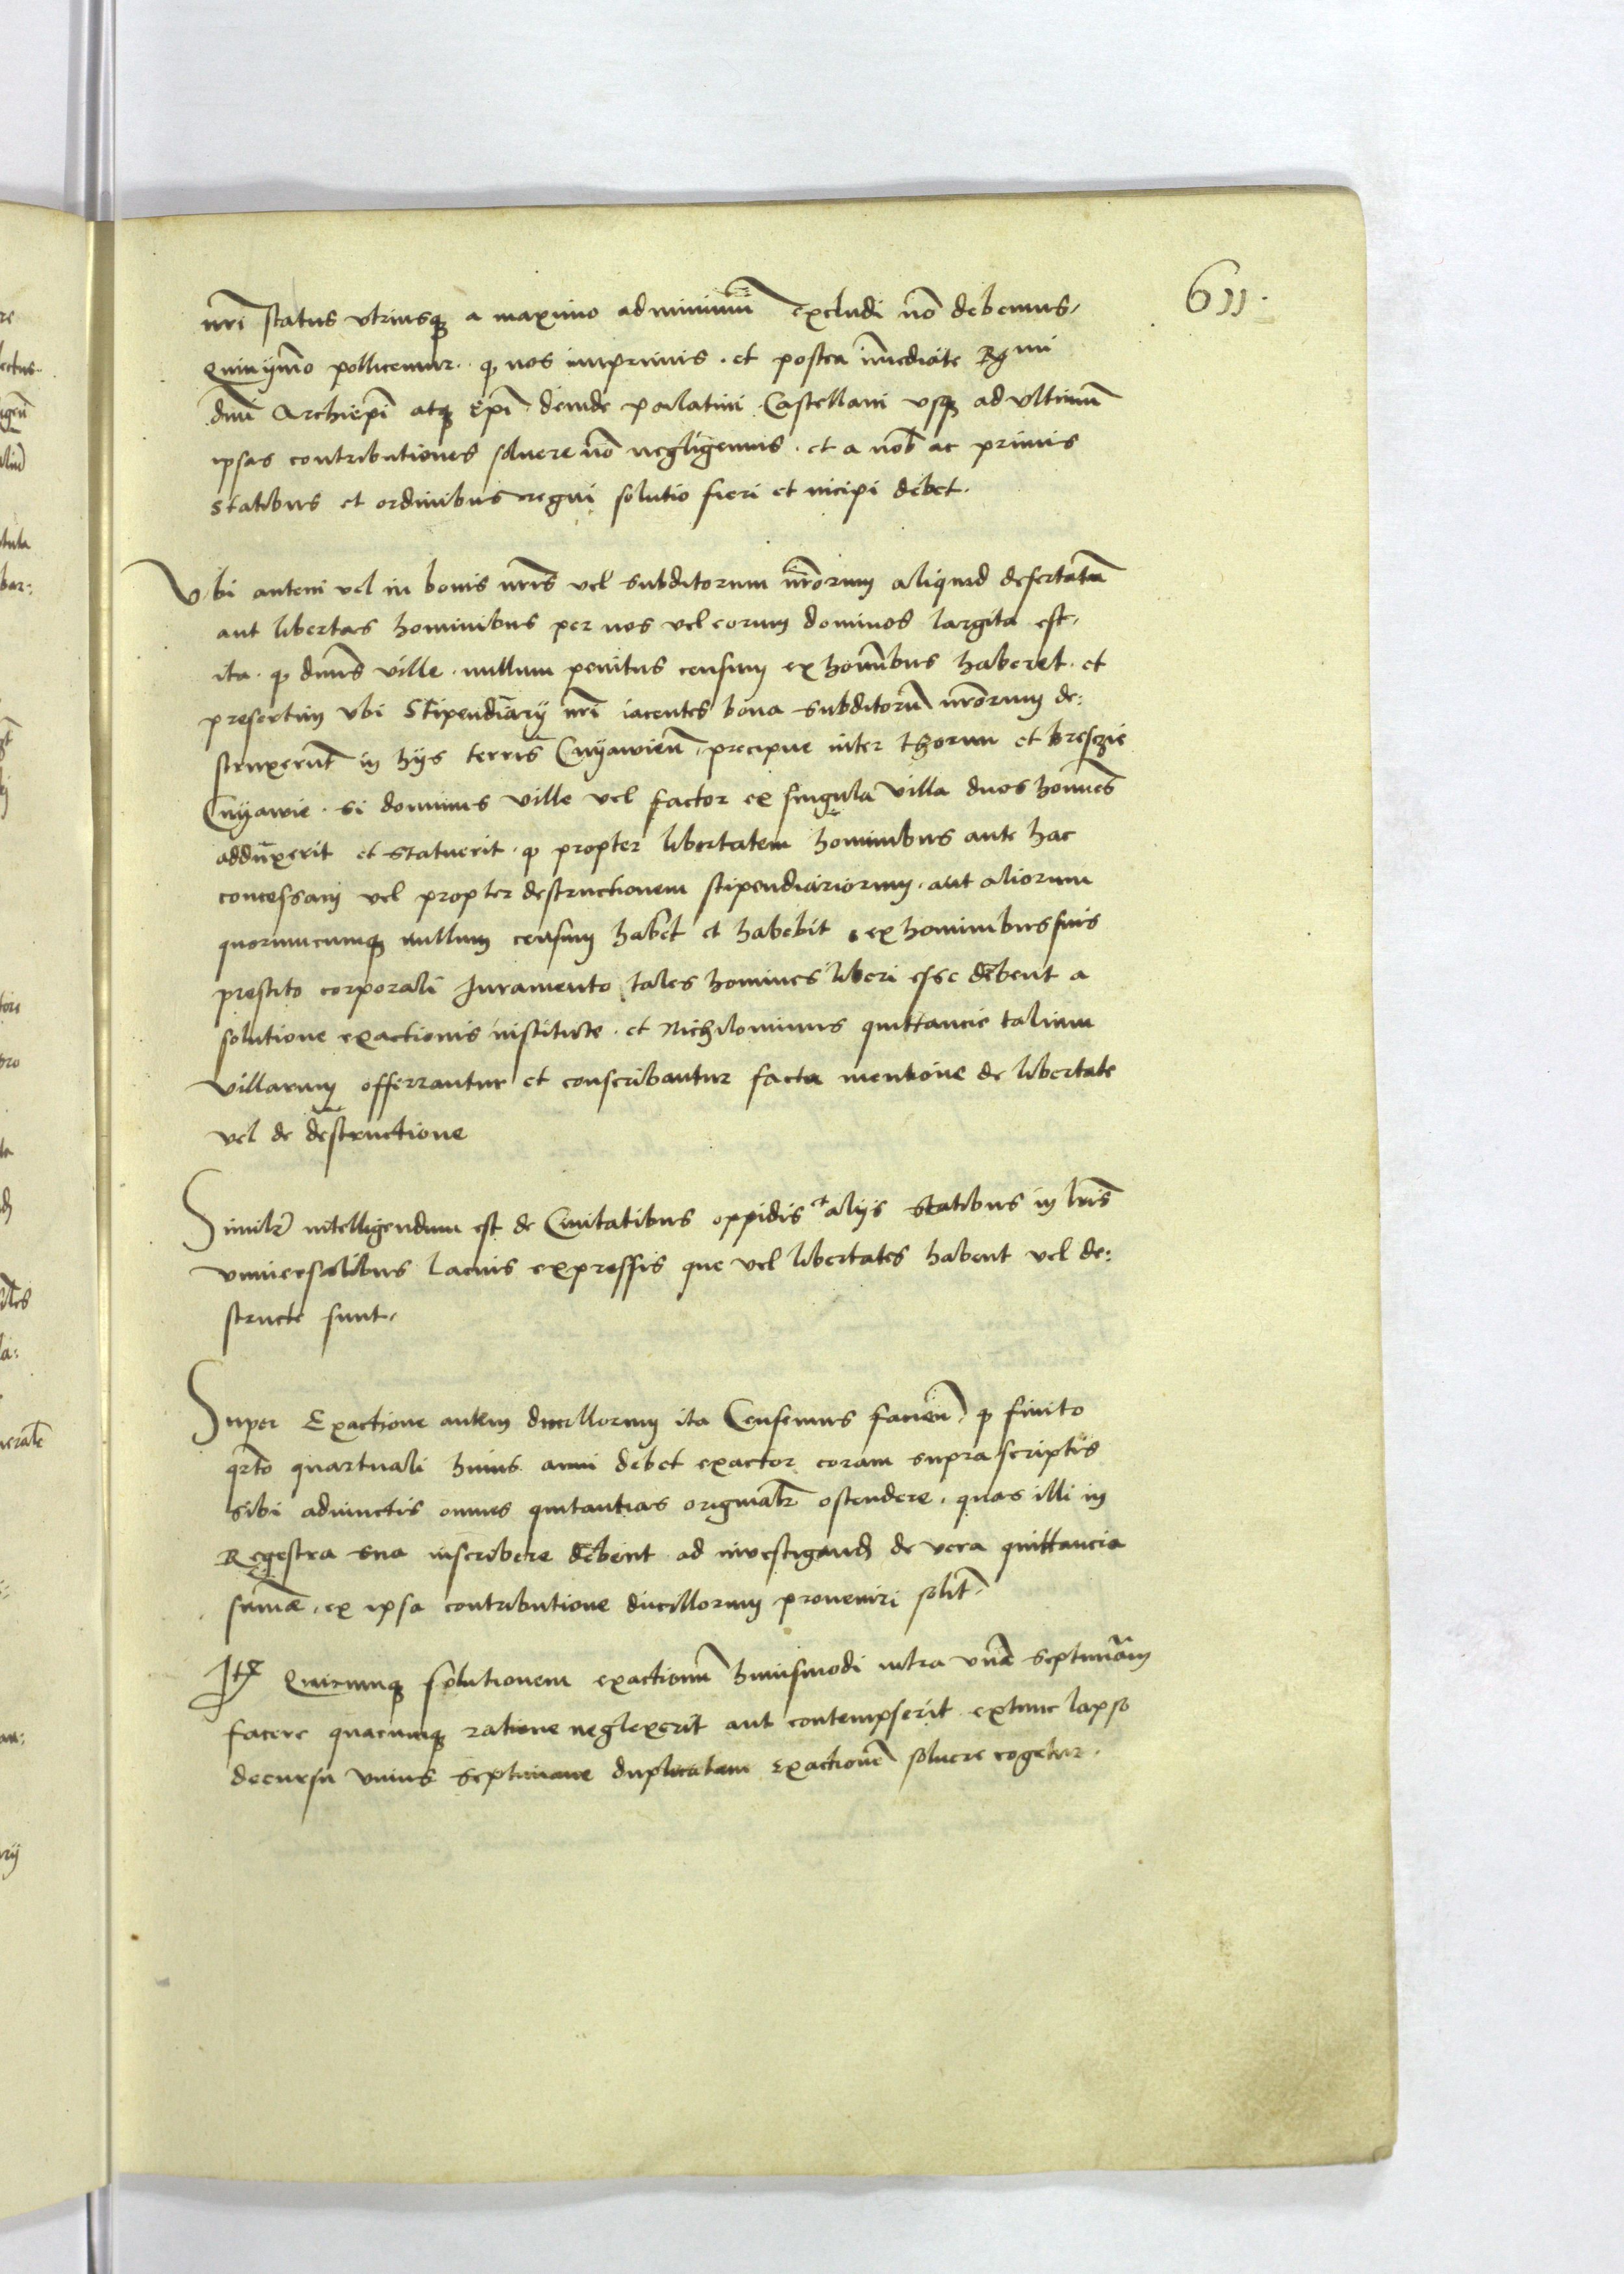 611.
nri status vtriusq a maximo ad minimu excludi no debemus.
Quinymo pollicemur. q nos imprimis. et postea imediate Rgmi
dni Archiepi atq Epi. deinde palatini Castellani vsq ad vltimu
ipsas contributiones soluere no negligemus. et a nob ac primis
statibus et ordinibus regni solutio fieri et incipi debet.
Vbi autem vel in bonis nris vel subditorum nrorum aliquid desertatu
aut libertas hominibus per nos vel eorum dominos largita est.
ita. q dnus ville. nullum penitus censum ex hominibus haberet. et
presertim vbi Stipendiarij nri iacentes bona subditoru nrorum de:
struxerut in hijs terris Cuyawien. precipue inter Thorun et bresczie
Cuyawie. si dominus ville vel factor ex singula villa duos homines
adduxerit et statuerit. q propter libertatem hominibus ante hac
concessam vel propter destructionem stipendiariorum. aut aliorum
quorumcumq nullum censum habet et habebit ex hominibus suis
prestito corporali Juramento tales homines liberi esse debent a
solutione exactionis institute. et Nichilominus quittancie talium
villarum offerrantur et conscribantur facta mentione de libertate
vel de destructione
Similr intelligendum est de Ciuitatibus oppidis et alijs statibus in lris
vniuersalibus lacius expressis que vel libertates habent vel de:
structe sunt.
Super Exactione autem ducillorum ita Censemus facien. q finito
qrto quartuali huius anni debet exactor coram suprascriptis
sibi adiunctis omnes quitantias originalr ostendere. quas illi in
Regestra sua inscribere debent ad inuestigand de vera quittancia
sume. ex ipsa contributione ducillorum proueniri solit.
It Quicumq solutionem exactionu huiusmodi intra vna septimana
facere quacumq ratione neglexerit aut contempserit extunc lapso
decursu vnius septimane duplicatam exactione soluere cogetur.